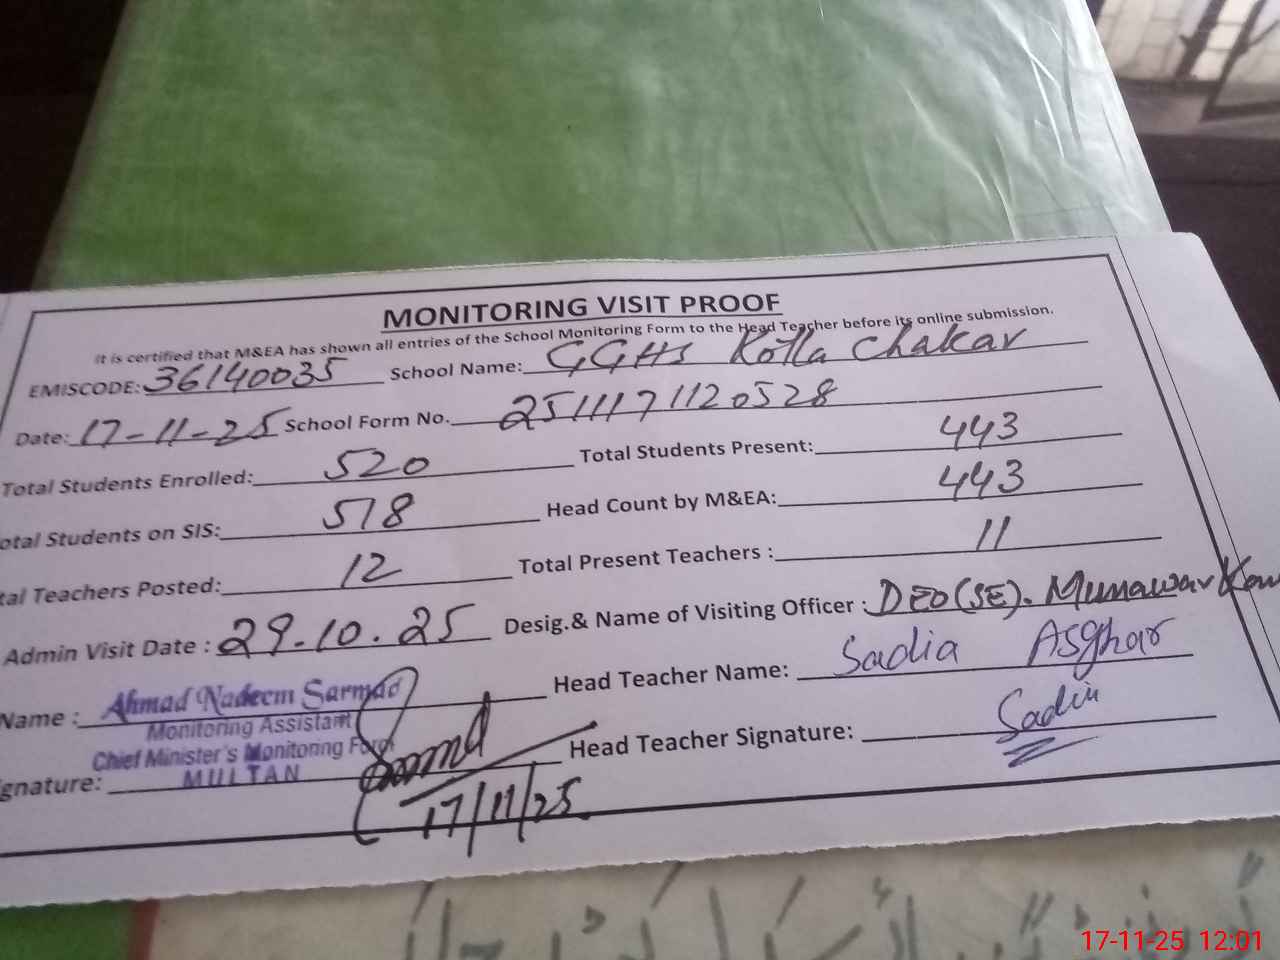 MONITORING VISIT PROOF
It is certified that M&EA has shown all entries of the School Monitoring Form to the Head Teacher before its online submission.
EMISCODE: 36140035 School Name: GGHS Kotla Chakar
Date: 17-11-25 School Form No. 2511171120528
Total Students Enrolled: 520 Total Students Present: 443
otal Students on SIS: 518 Head Count by M&EA: 443
tal Teachers Posted: 12 Total Present Teachers : 11
Admin Visit Date : 29.10.25 Desig.& Name of Visiting Officer : DEO(SE). Munawar
Name : Ahmad Nadeem Sarmad Head Teacher Name: Sadia Asghar
Monitoring Assistant
Chief Minister's Monitoring Force
MULTAN
gnature: Head Teacher Signature: Sadia
17/11/25
17-11-25 12:01